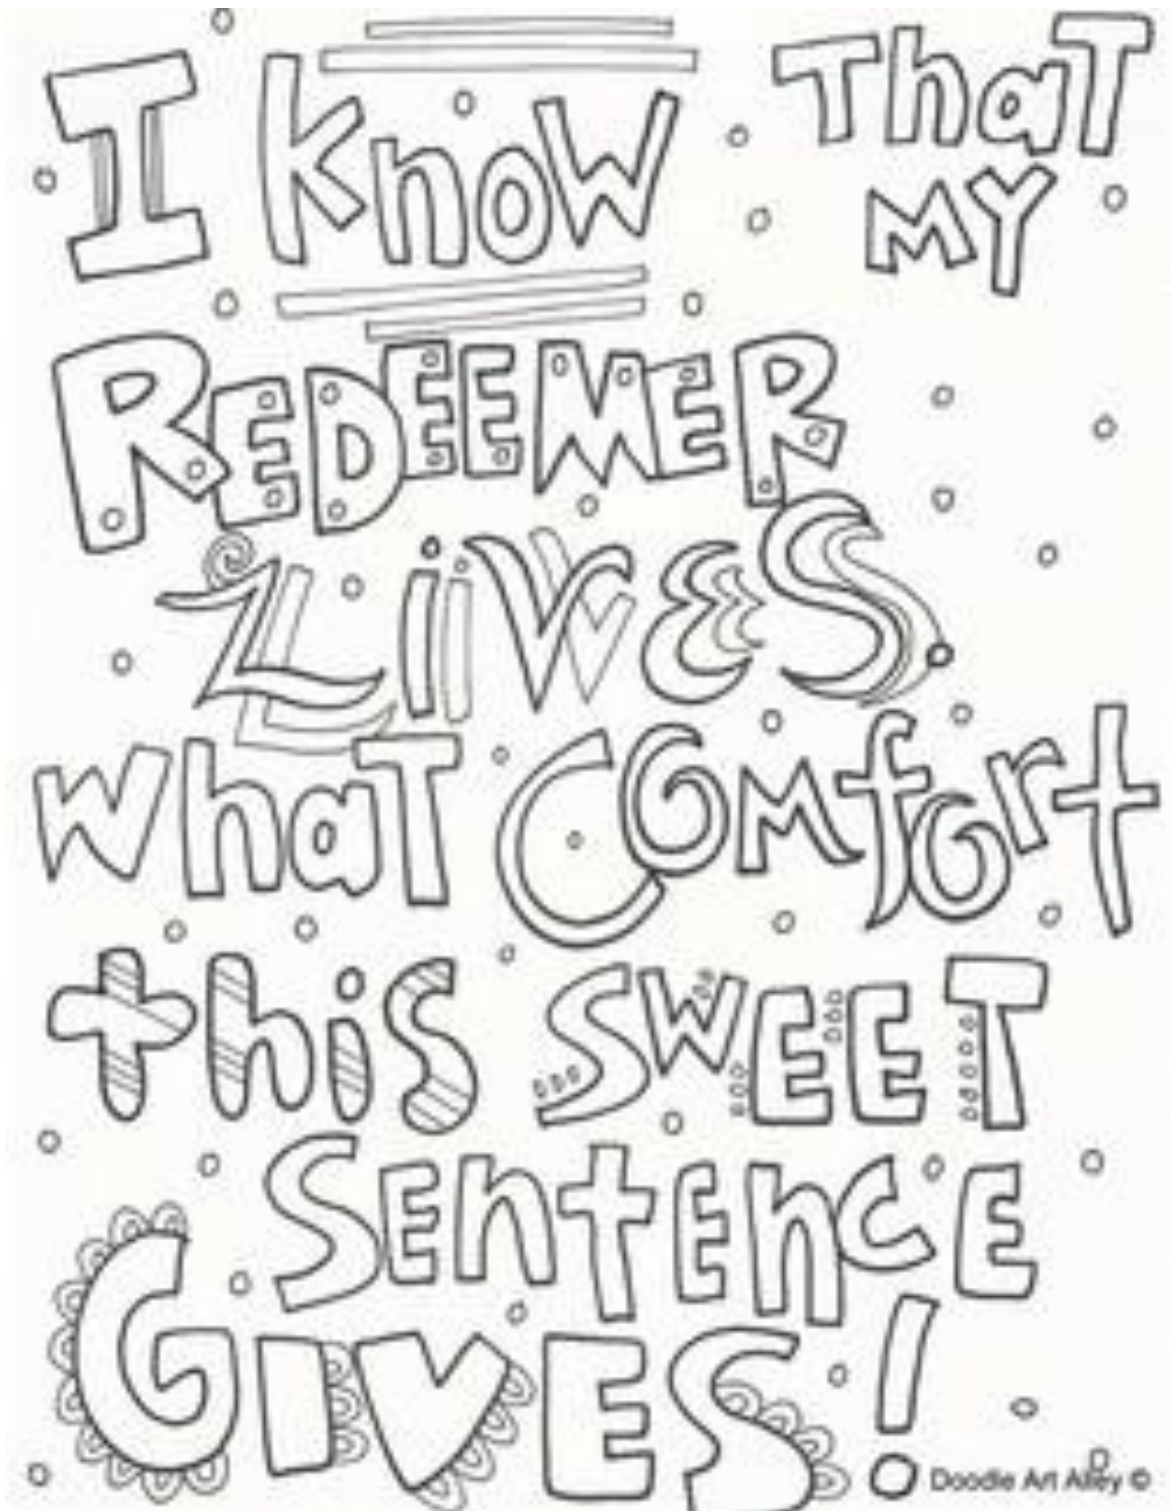 I Know That
MY
REDEEMER
Lives
what Comfort
this SWEET
Sentence
GIVES!
Doodle Art Alley ©